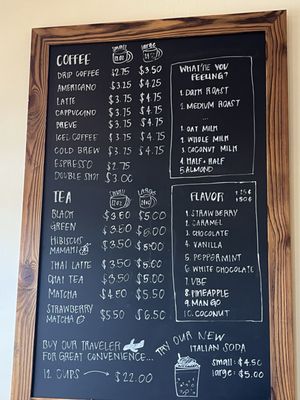 COFFEE
SMALL LARGE
DRIP COFFEE $2.75 $3.50
AMERICANO $3.25 $4.25
LATTE $3.75 $4.75
CAPPUCCINO $3.75 $4.75
BREVE $3.75 $4.75
ICED COFFEE $3.75 $4.75
COLD BREW $3.75 $4.75
ESPRESSO $2.75
DOUBLE SHOT $3.00
TEA
SMALL LARGE
BLACK $3.50 $5.00
GREEN $3.50 $5.00
HIBISCUS
MAMAMI $3.50 $5.00
THAI LATTE $3.50 $5.00
CHAI TEA $3.50 $5.00
MATCHA $4.50 $5.50
STRAWBERRY
MATCHA $5.50 $6.50
BUY OUR TRAVELER
FOR GREAT CONVENIENCE...
12 CUPS $22.00
WHAT'RE YOU
FEELING?
1. DARK ROAST
2. MEDIUM ROAST
1. OAT MILK
2. WHOLE MILK
3. COCONUT MILK
4. HALF + HALF
5. ALMOND
FLAVOR
1. STRAWBERRY
2. CARAMEL
3. CHOCOLATE
4. VANILLA
5. PEPPERMINT
6. WHITE CHOCOLATE
7. UBE
8. PINEAPPLE
9. MANGO
10. COCONUT
TRY OUR NEW
ITALIAN SODA
small: $4.50
large: $5.00